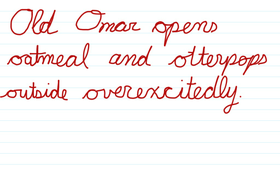 Old Omar opens
oatmeal and otterpops
outside overexcitedly.